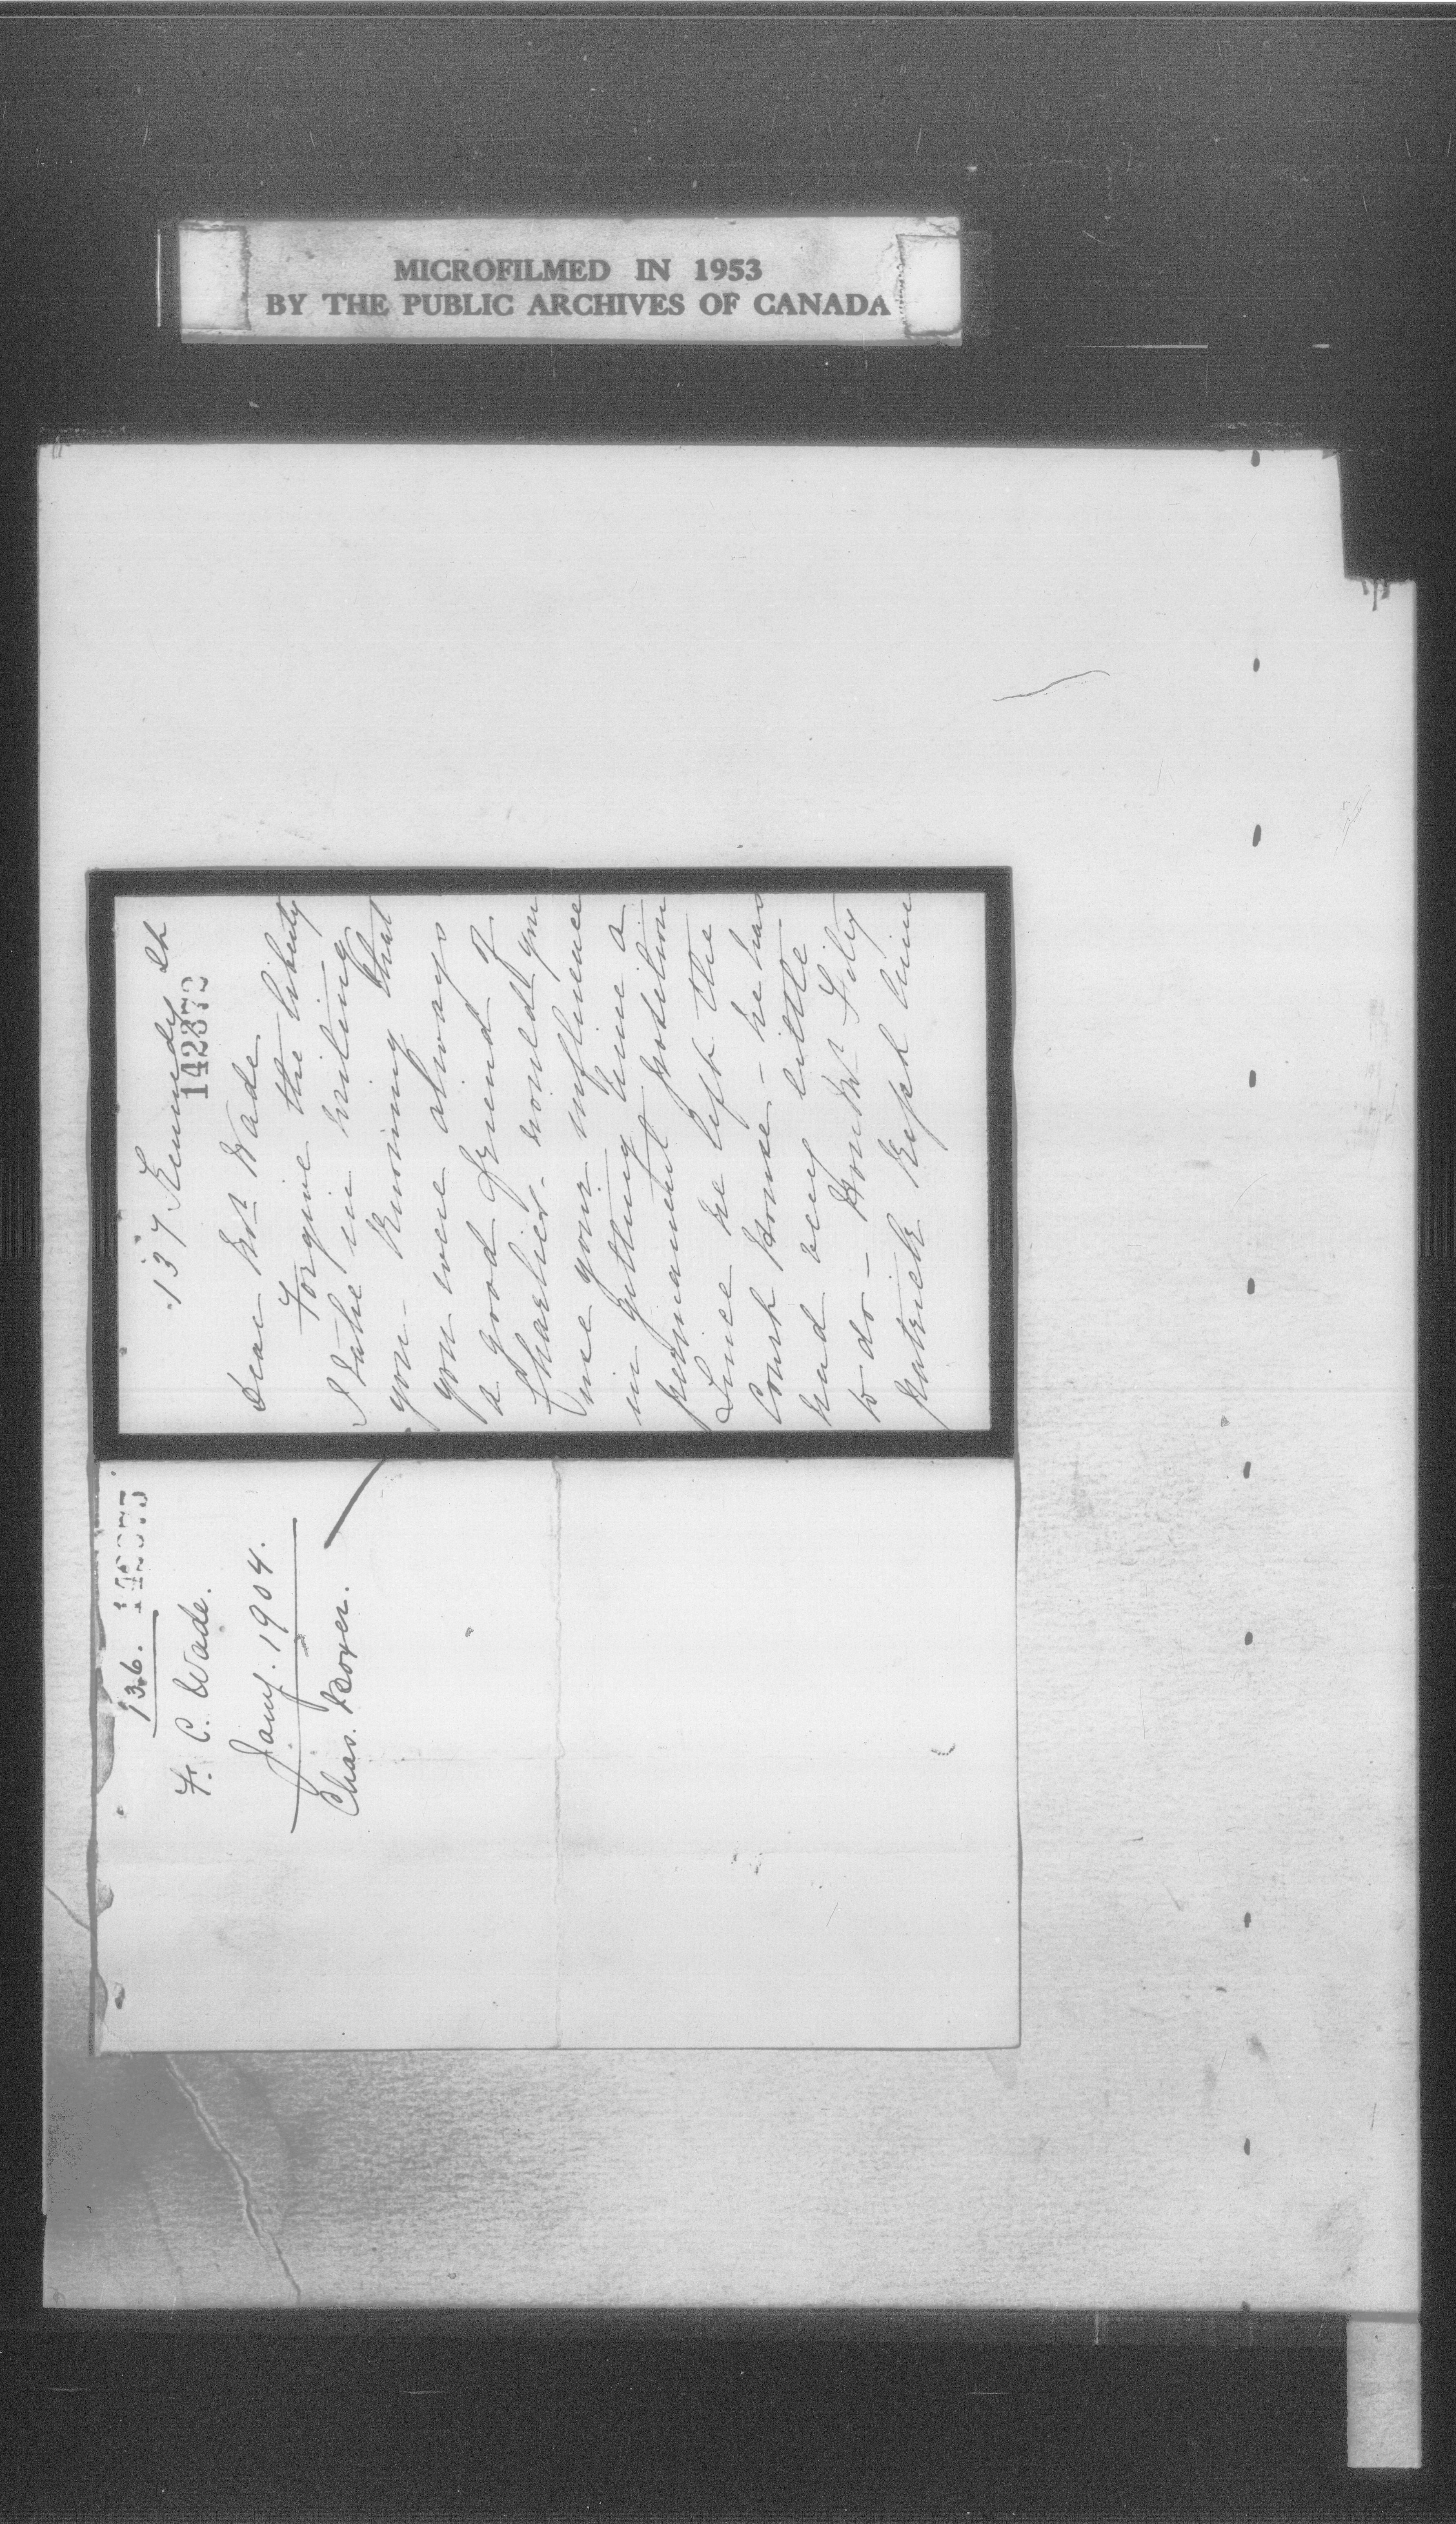 MICROFILMED IN 1953
BY THE PUBLIC ARCHIVES OF CANADA
137 Kennedy St
142372
Dear Mr Wade
Forgive the liberty
I take in writing
you - knowing that
you were always
a good friend of
Charlies. would you
use your influence
in getting him a
permanent position
Since he left the
Court House - he has
had very little
to do - Hon Mr Fitz
patrick kept him
136. 142373
F. C. Wade.
Jany. 1904.
Chas.